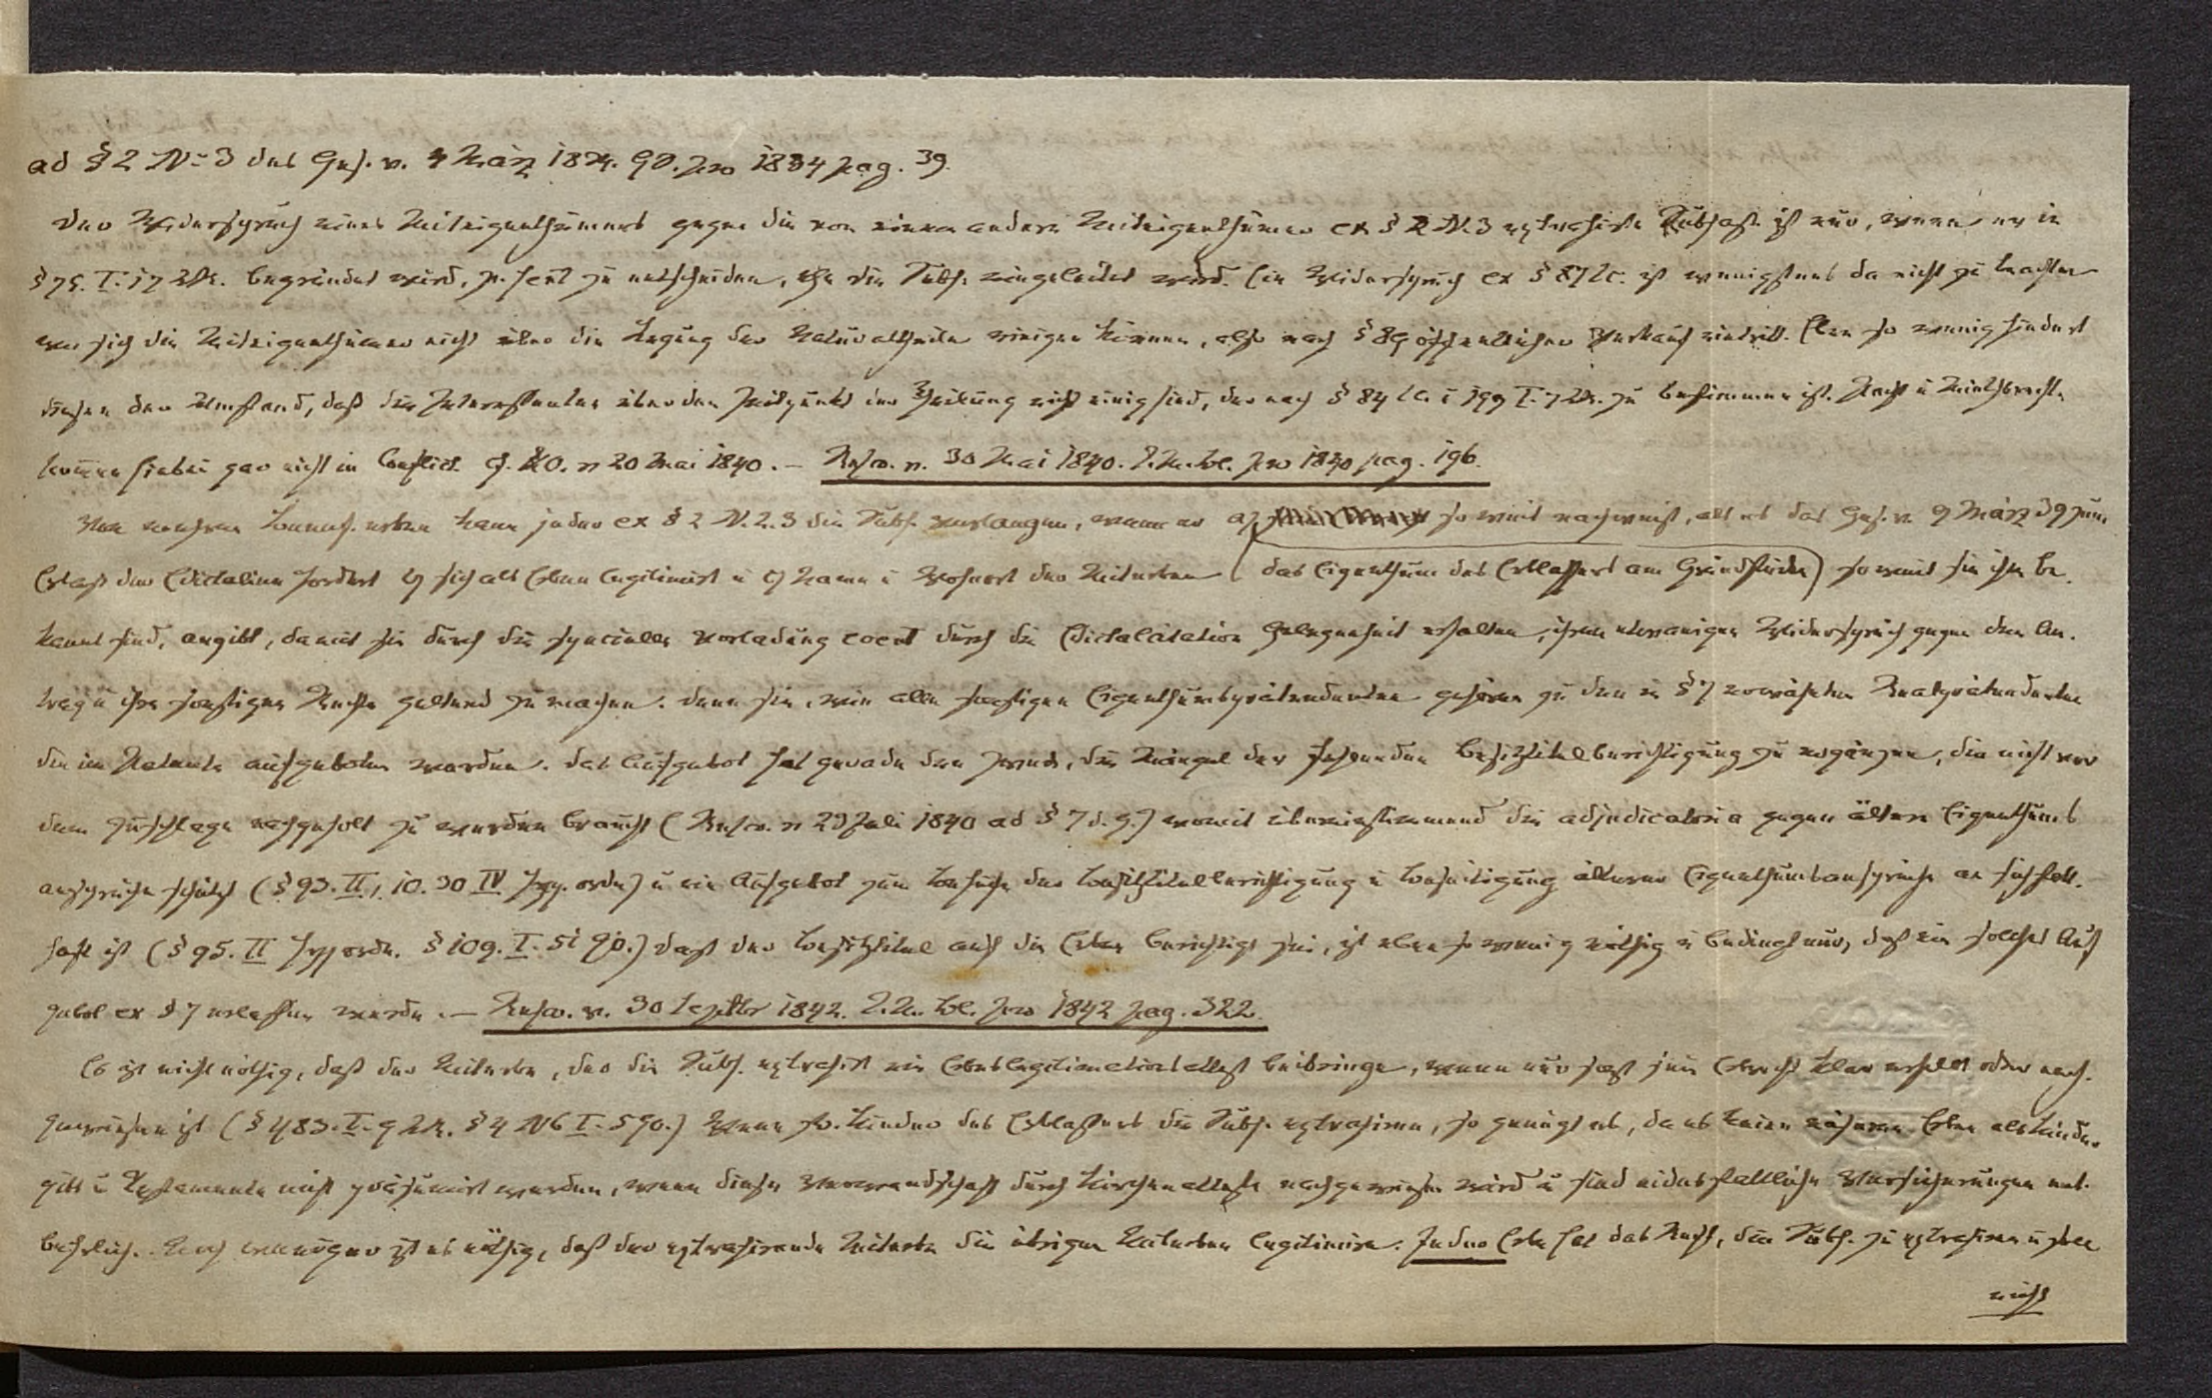 ad § 2 No 3 des Ges. v. 4 März 1834. GS. pro 1834 pag. 39.
Der Widerspruch eines Miteigenthümers gegen die von einem andern Miteigenthümer ex § 2 N. 3 extrahirte Subhast. ist nur, wenn er in
§ 75. I. 17 LR. begründet wird, p. sent zu entscheiden, ehe die Subh. eingeleitet wird. Ein Widerspruch ex § 87 lc. ist wenigstens da nicht zu beachten
wo sich die Miteigenthümer nicht über die Legung der Naturaltheile einigen können, also nach § 89 öffentlicher Verkauf eintritt. Eben so wenig hindert
diesen der Umstand, daß die Interessenten über den Zeitpunkt der Theilung nicht einig sind, der nach § 84 lc. u 199 I. 7 LR. zu bestimmen ist. Pacht u Miethsrechte
kommen hiebei gar nicht in Conflict. cf. KO. v 20 Mai 1840. — Rescr. v. 30 Mai 1840. J.M.Bl. pro 1840 pag. 196.
Von mehren Benef. erben kann jeder ex § 2 N. 2. 3 die Subh. verlangen, wenn er a) so weit nachweist, als es das Ges. v. 4 März 34 zum
Erlaß der Edictalien fordert b) sich als Erben legitimirt u c) Name u Wohnort der Miterben (das Eigenthum des Erblassers am Grundstücke) so weit sie ihm be-
kannt sind, angibt, damit sie durch die specielle Vorladung event durch die Edictalcitation Gelegenheit erhalten, ihren etwanigen Widerspruch gegen den An-
trag u ihre sonstigen Rechte geltend zu machen. Denn sie, wie alle sonstigen Eigenthumsprätendenten gehören zu den in § 7 erwähnten Realprätendenten
die im Patente aufgeboten werden. Das Aufgebot hat gerade den Zweck, die Mängel der fehlenden Besitztitelberichtigung zu ergänzen, die nicht vor
dem Zuschlage nachgeholt zu werden braucht (Rescr. v 29 Juli 1840 ad § 7 d. G.) womit übereinstimmend die adjudicatoria gegen ältere Eigenthums
ansprüche schützt (§ 93. II, 10. 30 IV Hyp. ordn) u ein Aufgebot zum Behufe der Besitztitelberichtigung u Beseitigung älterer Eigenthumsansprüche an sich statt-
haft ist (§ 95. II Hypordn. § 109. I. 51 GO.) Daß der Besitztitel auf die Erben berichtigt sei, ist eben so wenig nöthig u bedingt nur, daß ein solches Auf
gebot ex § 7 erlassen werde. — Rescr. v. 30 Septbr 1842. J.M. Bl. pro 1842 pag. 322.
Es ist nicht nöthig, daß der Miterbe, der die Subh. extrahirt ein Erbeslegitimationsattest beibringe, wenn nur sein Erbrecht klar erhellt oder nach-
gewiesen ist (§ 483. I. 9 LR. § 4 N6 I. 5 GO.) Wenn Kinder des Erblassers die Subh. extrahiren, so genügt es, da es keine nähern Erben als Kinder
gibt u Testamente nicht präsumirt werden, wenn diese Verwandschaft durch Kirchenatteste nachgewiesen wird u sind eidesstattliche Versicherungen ent-
behrlich. Noch weniger ist es nöthig, daß der extrahirende Miterbe die übrigen Miterben legitimire. Jeder Erbe hat das Recht, die Subh. zu extrahiren u
nicht